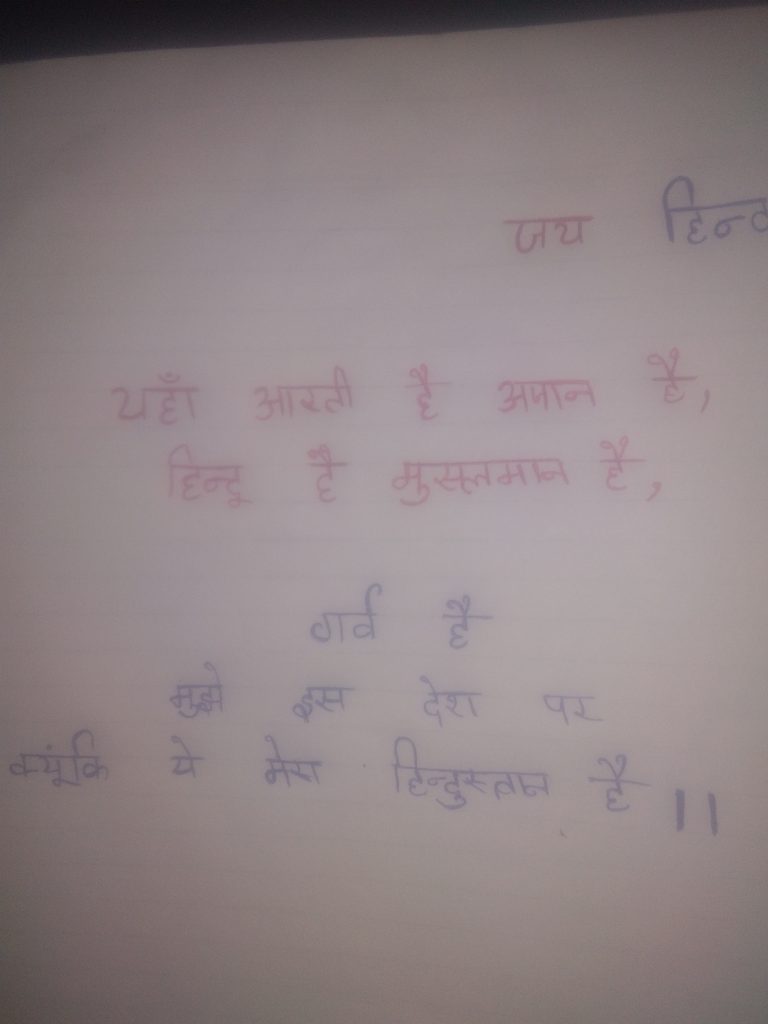 जय हिन्द
यहाँ आरती है अजान है,
हिन्दू है मुसलमान है,
गर्व है
मुझे इस देश पर
क्यूंकि ये मेरा हिन्दुस्तान है ||